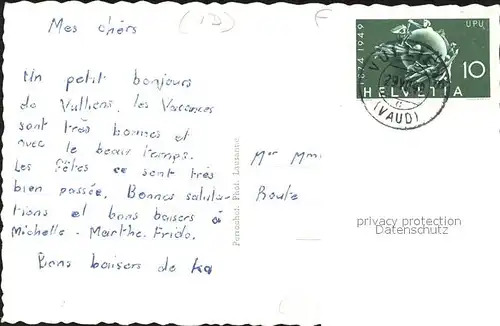 Mes chérs
(1D)
F
Un petit bonjours
de Vulliens. les Vacances
sont très bonnes et
avec le beau temps.
Les Fêtes ce sont très
bien passée. Bonnes saluta-
tions et bons baisers à
Michelle - Marthe. Frido.
Bons baisers de
Perrochet. Phot. Lausanne.
1874 1949
UPU
10
HELVETIA
(VAUD)
Mer Mme
Route
privacy protection
Datenschutz